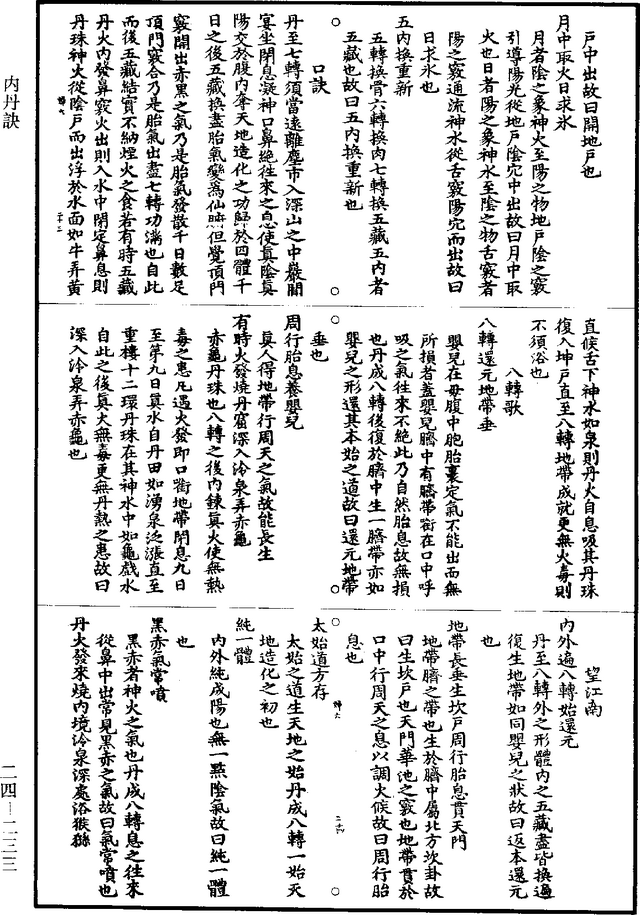 內丹訣
戶中出故曰開地戶也
月中取火日求氷
月者陰之象神火至陽之物地戶陰之竅
引導陽光從地戶陰宂中出故曰月中取
火也日者陽之象神水至陰之物舌竅者
陽之竅通流神水從舌竅陽宂而出故曰
日求氷也
五內換重新
五轉換骨六轉換肉七轉換五藏五內者
五藏也故曰五內換重新也
口訣
丹至七轉須當遠離塵市入深山之中嚴閉
宴坐閉息凝神口鼻絶往來之息使眞陰眞
陽交於腹內奪天地造化之功歸於四體千
日之後五藏換盡胎氣變爲仙腑但覺頂門
竅開出赤黑之氣乃是胎氣發散千日數足
頂門竅合乃是胎氣出盡七轉功滿也自此
而後五藏結實不納煙火之食若有時五藏
丹火內發鼻竅火出則入水中閉定鼻息則
丹珠神火從陰戶而出浮於水面如牛弄黃
直候舌下神水如泉則丹火自息吸其丹珠
復入坤戶直至八轉地帶成就更無火毒則
不須浴也
八轉歌
八轉還元地帶垂
嬰兒在毋腹中胞胎裏定氣不能出而無
所損者蓋嬰兒臍中有臍帶銜在口中呼
吸之氣往來不絶此乃自然胎息故無損
也丹成八轉後復於臍中生一臍帶亦如
嬰兒之形還其本始之道故曰還元地帶
垂也
周行胎息養嬰兒
眞人得地帶行周天之氣故能長生
有時火發燒丹窟深入泠泉弄赤龜
赤龜丹珠也八轉之後內鍊眞火使無熱
毒之患凡遇火發即口銜地帶閉息九日
至第九日眞水自丹田如湧泉泛漲直至
重樓十二環丹珠在其神水中如龜戲水
自此之後眞火無毒更無丹熱之患故曰
深入泠泉弄赤龜也
望江南
內外遍八轉始還元
丹至八轉外之形體內之五藏盡皆換過
復生地帶如同嬰兒之狀故曰返本還元
也
地帶長垂生坎戶周行胎息貫天門
地帶臍之帶也生於臍中屬北方坎卦故
曰生坎戶也天門華池之竅也地帶貫於
口中行周天之息以調火候故曰周行胎
息也
太始道方存
太始之道生天地之始丹成八轉一始天
地造化之初也
純一體
內外純成陽也無一㸃陰氣故曰純一體
也
黑赤氣常噴
黑赤者神火之氣也丹成八轉息之往來
從鼻中出常見黑赤之氣故曰氣常噴也
丹火發來燒內境泠泉深處浴猴猻
二四—二三三